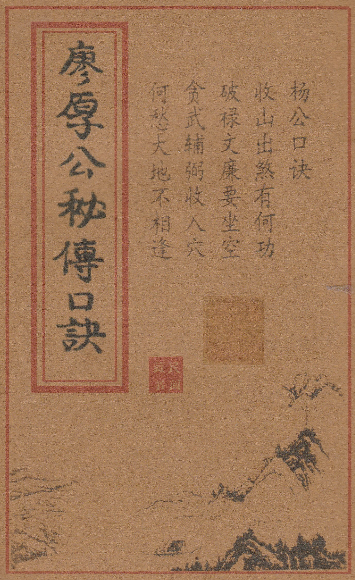 廖厚公秘傳口訣
杨公口诀
收山出煞有何功
破禄文廉要坐空
贪武辅弼收入穴
何愁天地不相逢